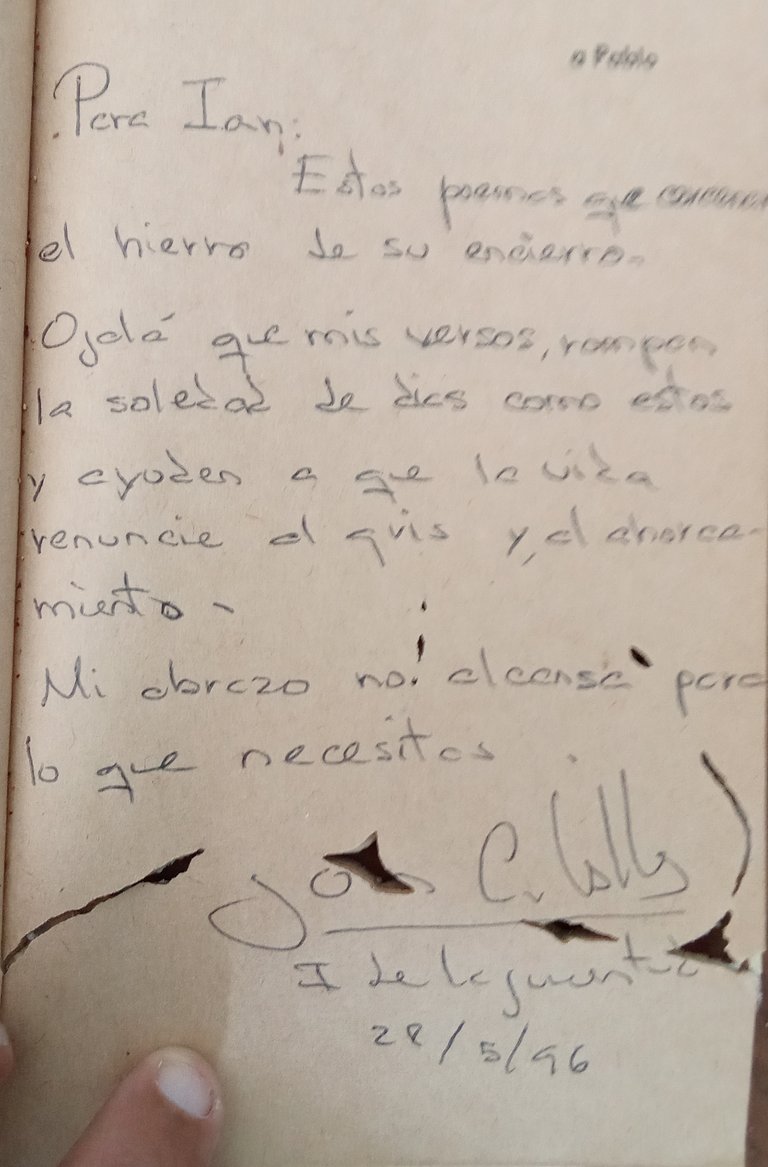 a Pablo
Para Ian:
Estos poemas que
el hierro de su encierro.
Ojalá que mis versos, rompan
la soledad de días como estos
y ayuden a que la vida
renuncie al gris y, al ahorca-
miento -
Mi abrazo no! alcansa para
lo que necesitas
C.
I de la Juventud
28/5/96